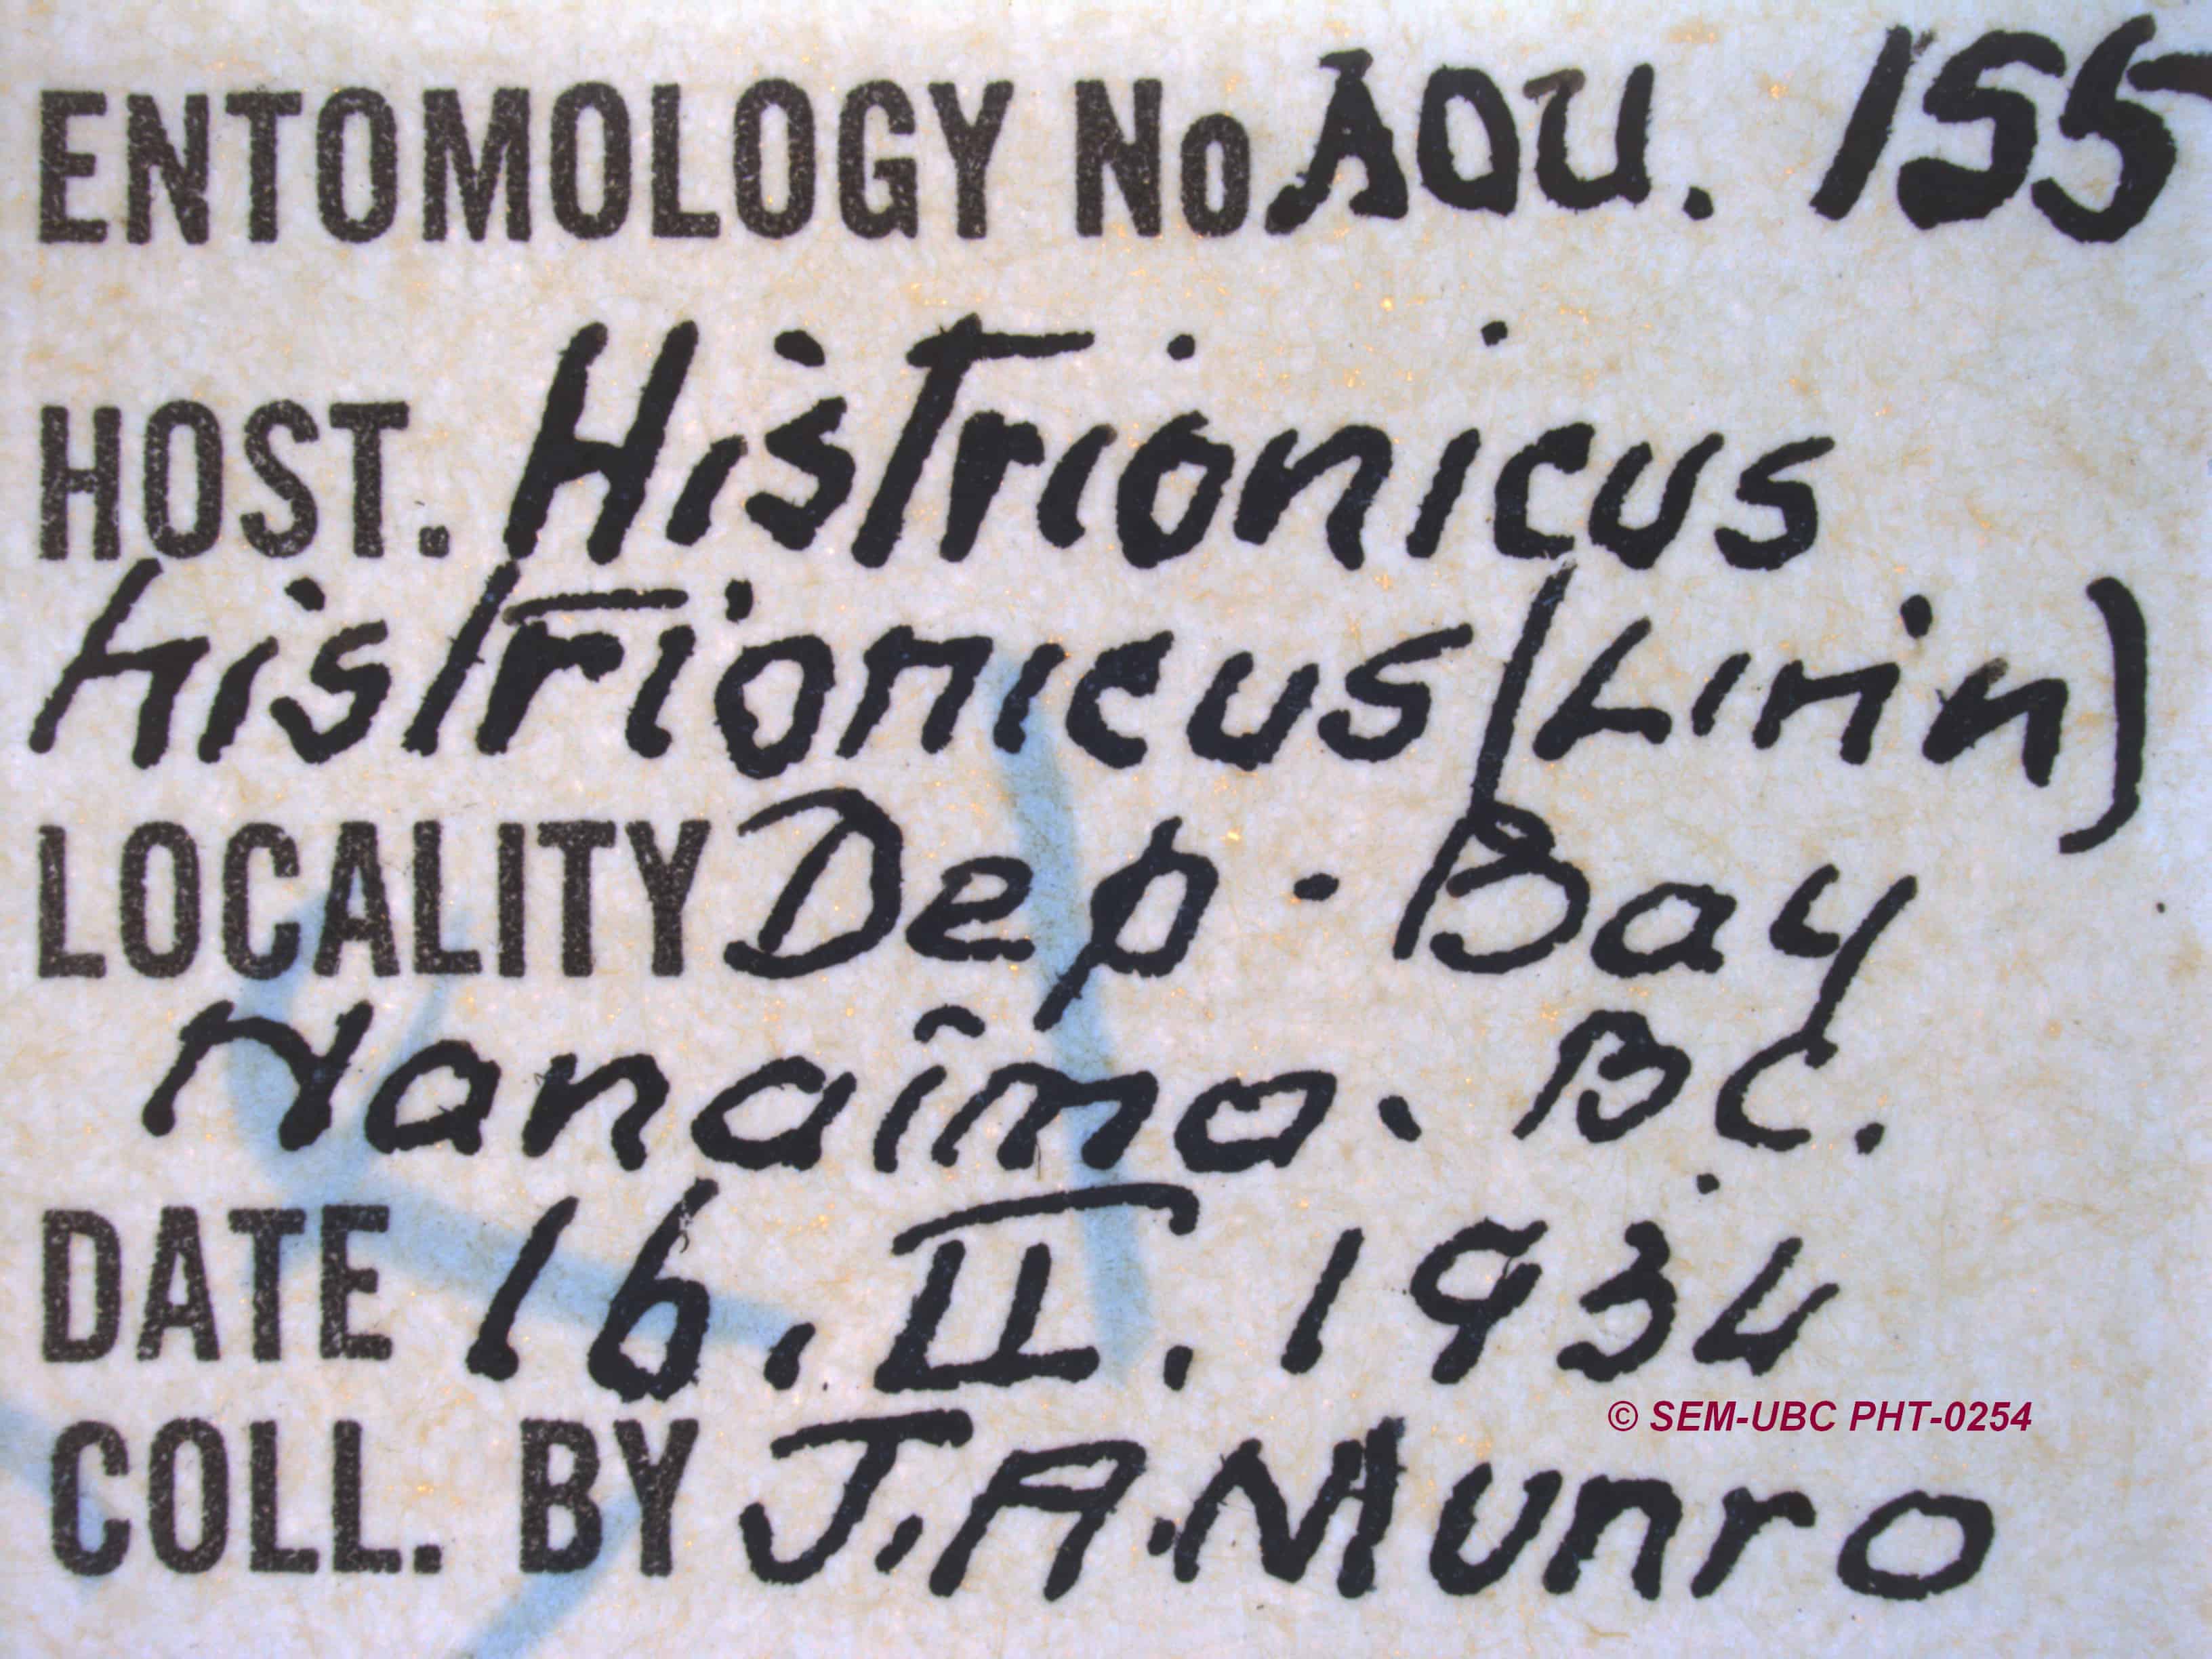 ENTOMOLOGY No AOU. 155
HOST. Histrionicus
histrionicus (Linn)
LOCALITY Dep. Bay
Nanaimo. BC.
DATE 16. II. 1934
© SEM-UBC PHT-0254
COLL. BY J.A. Munro